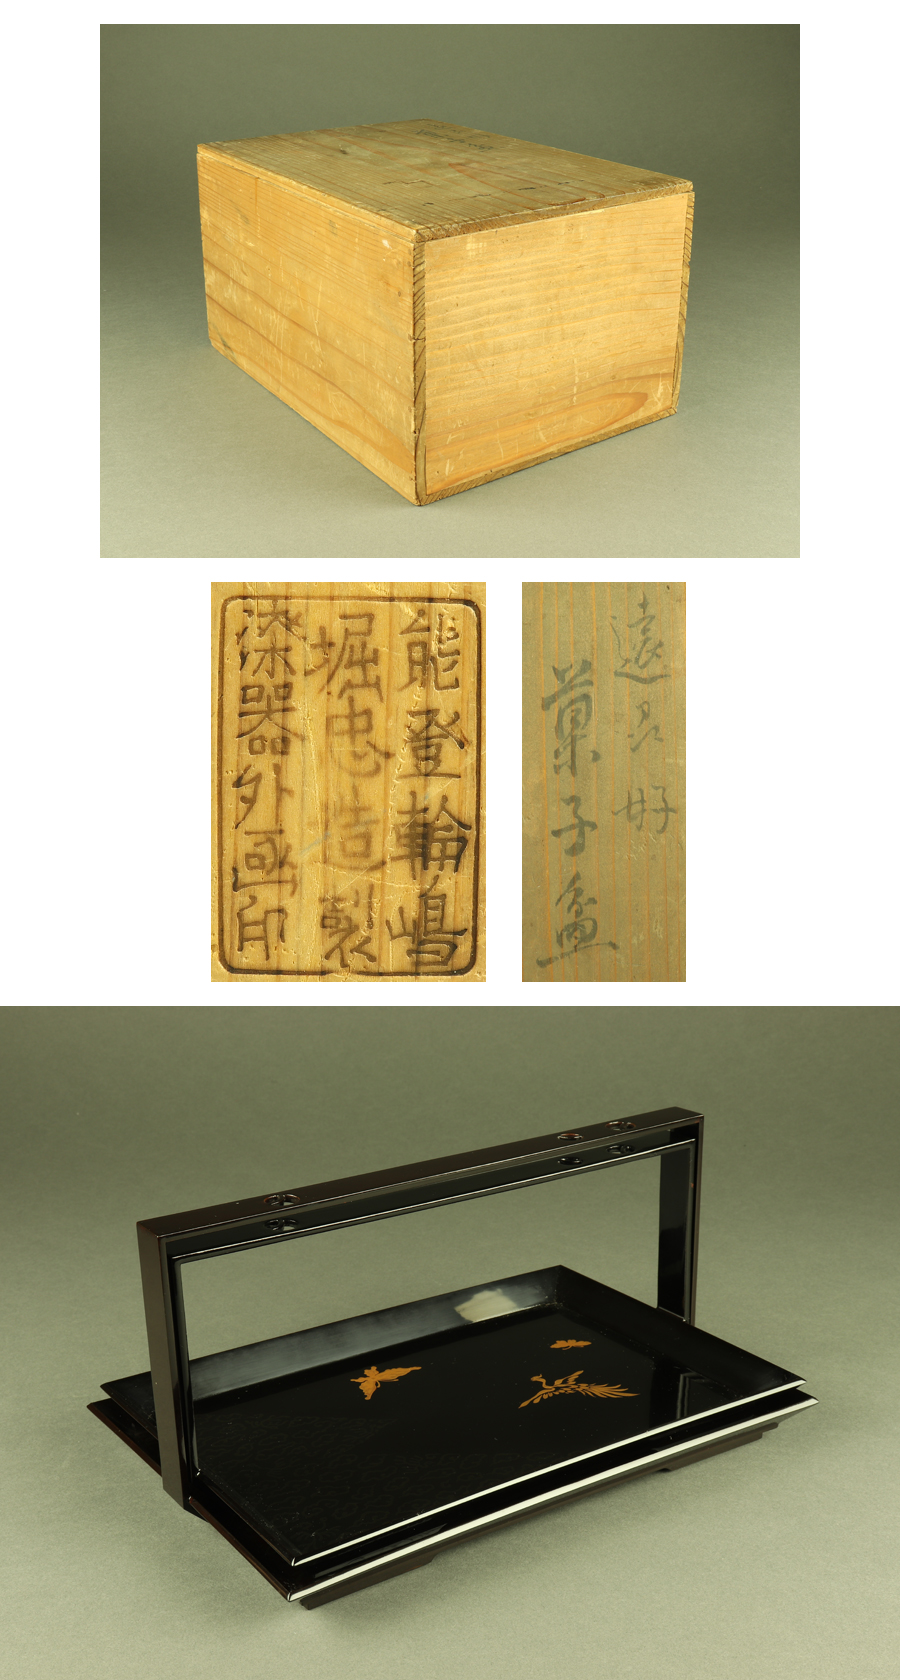 能登輪嶋
堀忠造製
漆器外函印
遠州好
菓子盆